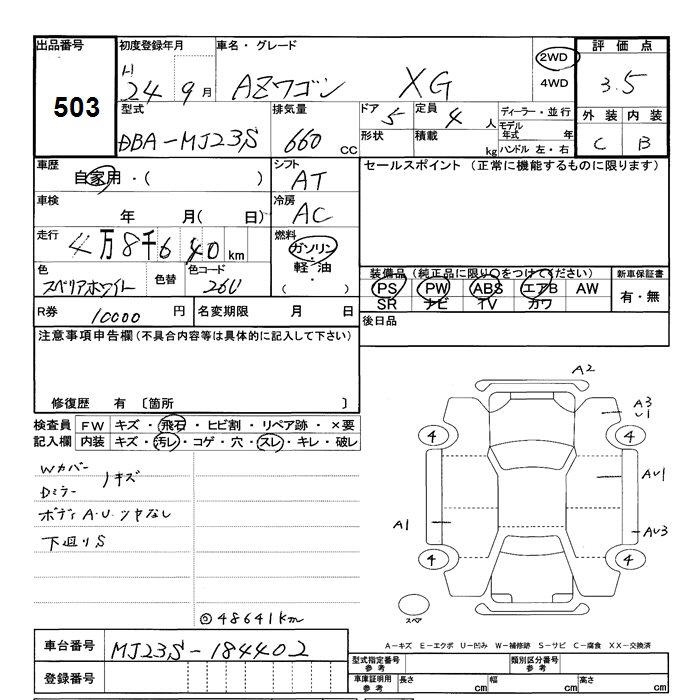 出品番号 初度登録年月 車名・グレード 2WD 評価点
503 H 24 9月 AZワゴン XG 4WD 3.5
型式 排気量 ドア 5 定員 4人 ディーラー・並行 外装 内装
DBA-MJ23S 660 CC 形状 積載 kg モデル年式 年 C B
ハンドル 左・右
車歴 シフト セールスポイント (正常に機能するものに限ります)
自家用・( ) AT
車検 冷房
年 月( 日) AC
走行 燃料
4万8千640km ガソリン・軽油・( )
色 色替 色コード 装備品 (純正品に限り○をつけてください) 新車保証書
スペリアホワイト 26U PS PW ABS エアB AW 有・無
SR ナビ TV カワ
R券 10000円 名変期限 月 日 後日品
注意事項申告欄(不具合内容等は具体的に記入して下さい)
修復歴 有 〔箇所 〕
検査員 FW キズ・飛石・ヒビ割・リペア跡・×要
記入欄 内装 キズ・汚レ・コゲ・穴・スレ・キレ・破レ
Wカバー
Dミラー ノキズ
ボディA.U.ツヤなし
下廻りS
◎48641km
A2
A3
U1
4 4
AU1
A1 AU3
4 4
スペア
A-キズ E-エクボ U-凹み W-補修跡 S-サビ C-腐食 XX-交換済
車台番号 MJ23S-184402 型式指定番号 参考 類別区分番号 参考
登録番号 車庫証明用 参考 長さ cm 幅 cm 高さ cm